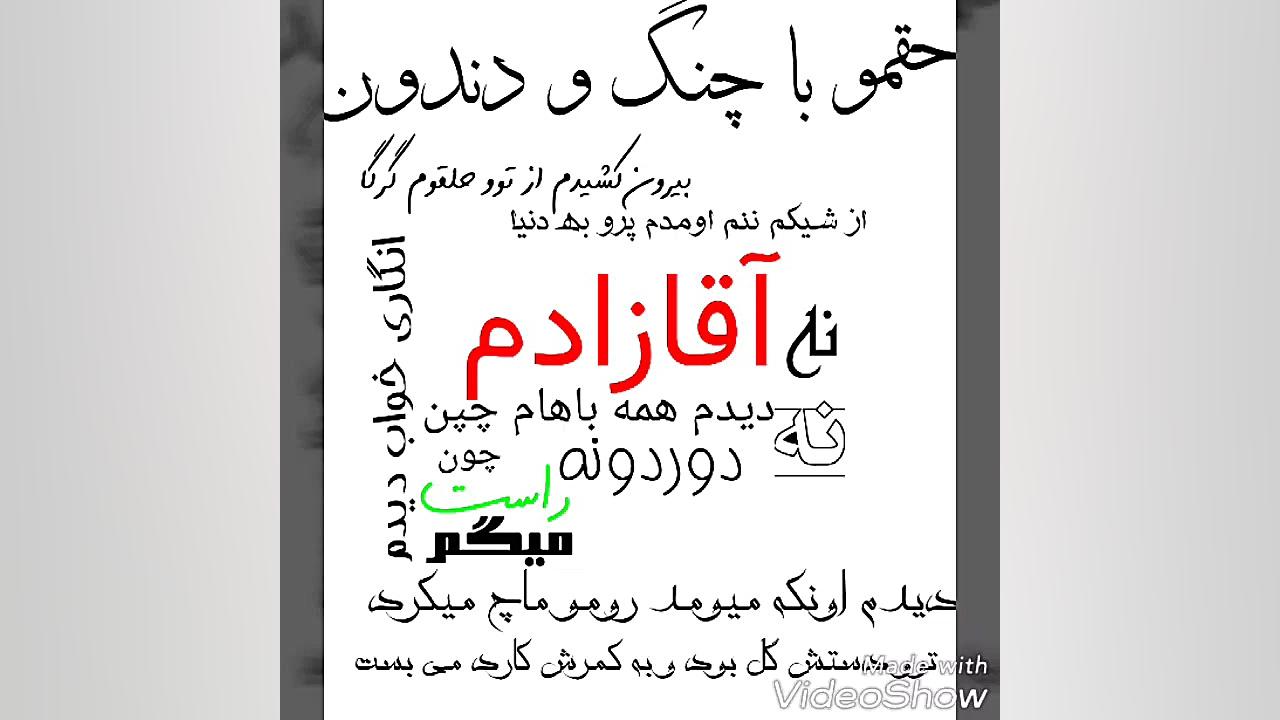 حقمو با چنگ و دندون
بیرون کشیدم از توو حلقوم گرگا
از شیکم ننم اومدم پرو بھ دنیا
انگاری خواب دیدم
نه آقازادم
نه دیدم همه باهام چپن
دوردونه چون
راست
میگم
دیدم اونکه میومد رومو ماچ میکرد
تو دستش گل بود و به کمرش کارد می بست
Made with
VideoShow